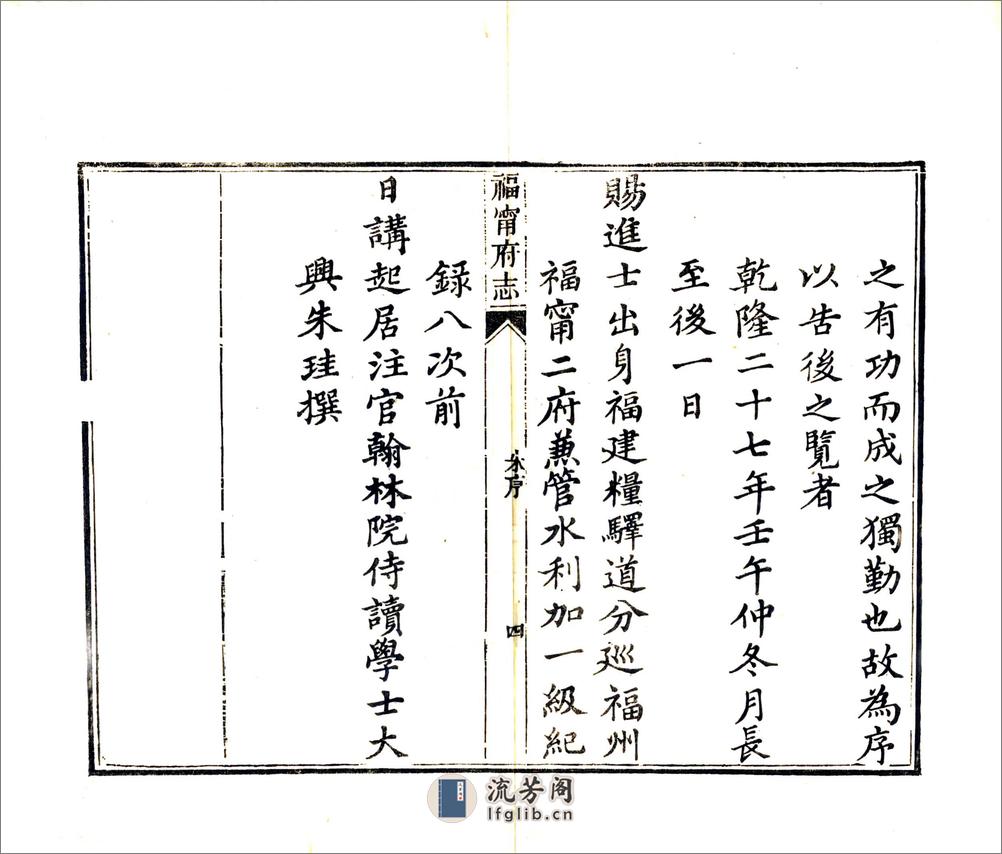 之有功而成之獨勤也故為序
以告後之覽者
乾隆二十七年壬午仲冬月長
至後一日
賜進士出身福建糧驛道分巡福州
福甯二府兼管水利加一級紀
福甯府志
朱序
四
錄八次前
日講起居注官翰林院侍讀學士大
興朱珪撰
流芳阁
lfglib.cn